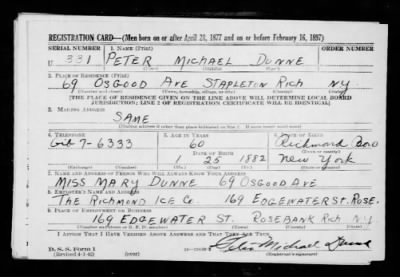 REGISTRATION CARD—(Men born on or after April 28, 1877 and on or before February 16, 1897)
SERIAL NUMBER 1. NAME (Print) ORDER NUMBER
U 331 PETER MICHAEL DUNNE
2. PLACE OF RESIDENCE (Print)
69 OSGOOD AVE STAPLETON RICH NY
[THE PLACE OF RESIDENCE GIVEN ON THE LINE ABOVE WILL DETERMINE LOCAL BOARD
JURISDICTION; LINE 2 OF REGISTRATION CERTIFICATE WILL BE IDENTICAL]
3. MAILING ADDRESS
SAME
[Mailing address if other than place indicated on line 2. If same insert word same]
4. TELEPHONE 5. AGE IN YEARS 6. PLACE OF BIRTH
Gib 7-6333 60 Richmond Boro
DATE OF BIRTH
1 25 1882 New York
7. NAME AND ADDRESS OF PERSON WHO WILL ALWAYS KNOW YOUR ADDRESS
MISS MARY DUNNE 69 OSGOOD AVE
8. EMPLOYER'S NAME AND ADDRESS
THE RICHMOND ICE CO. 169 EDGEWATER ST. ROSE.
9. PLACE OF EMPLOYMENT OR BUSINESS
169 EDGEWATER ST. ROSEBANK RICH NY
I AFFIRM THAT I HAVE VERIFIED ABOVE ANSWERS AND THAT THEY ARE TRUE.
D. S. S. Form 1
(Revised 4-1-42)
Peter Michael Dunne